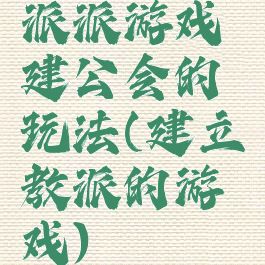 派派游戏
建公会的
玩法(建立
教派的游
戏)